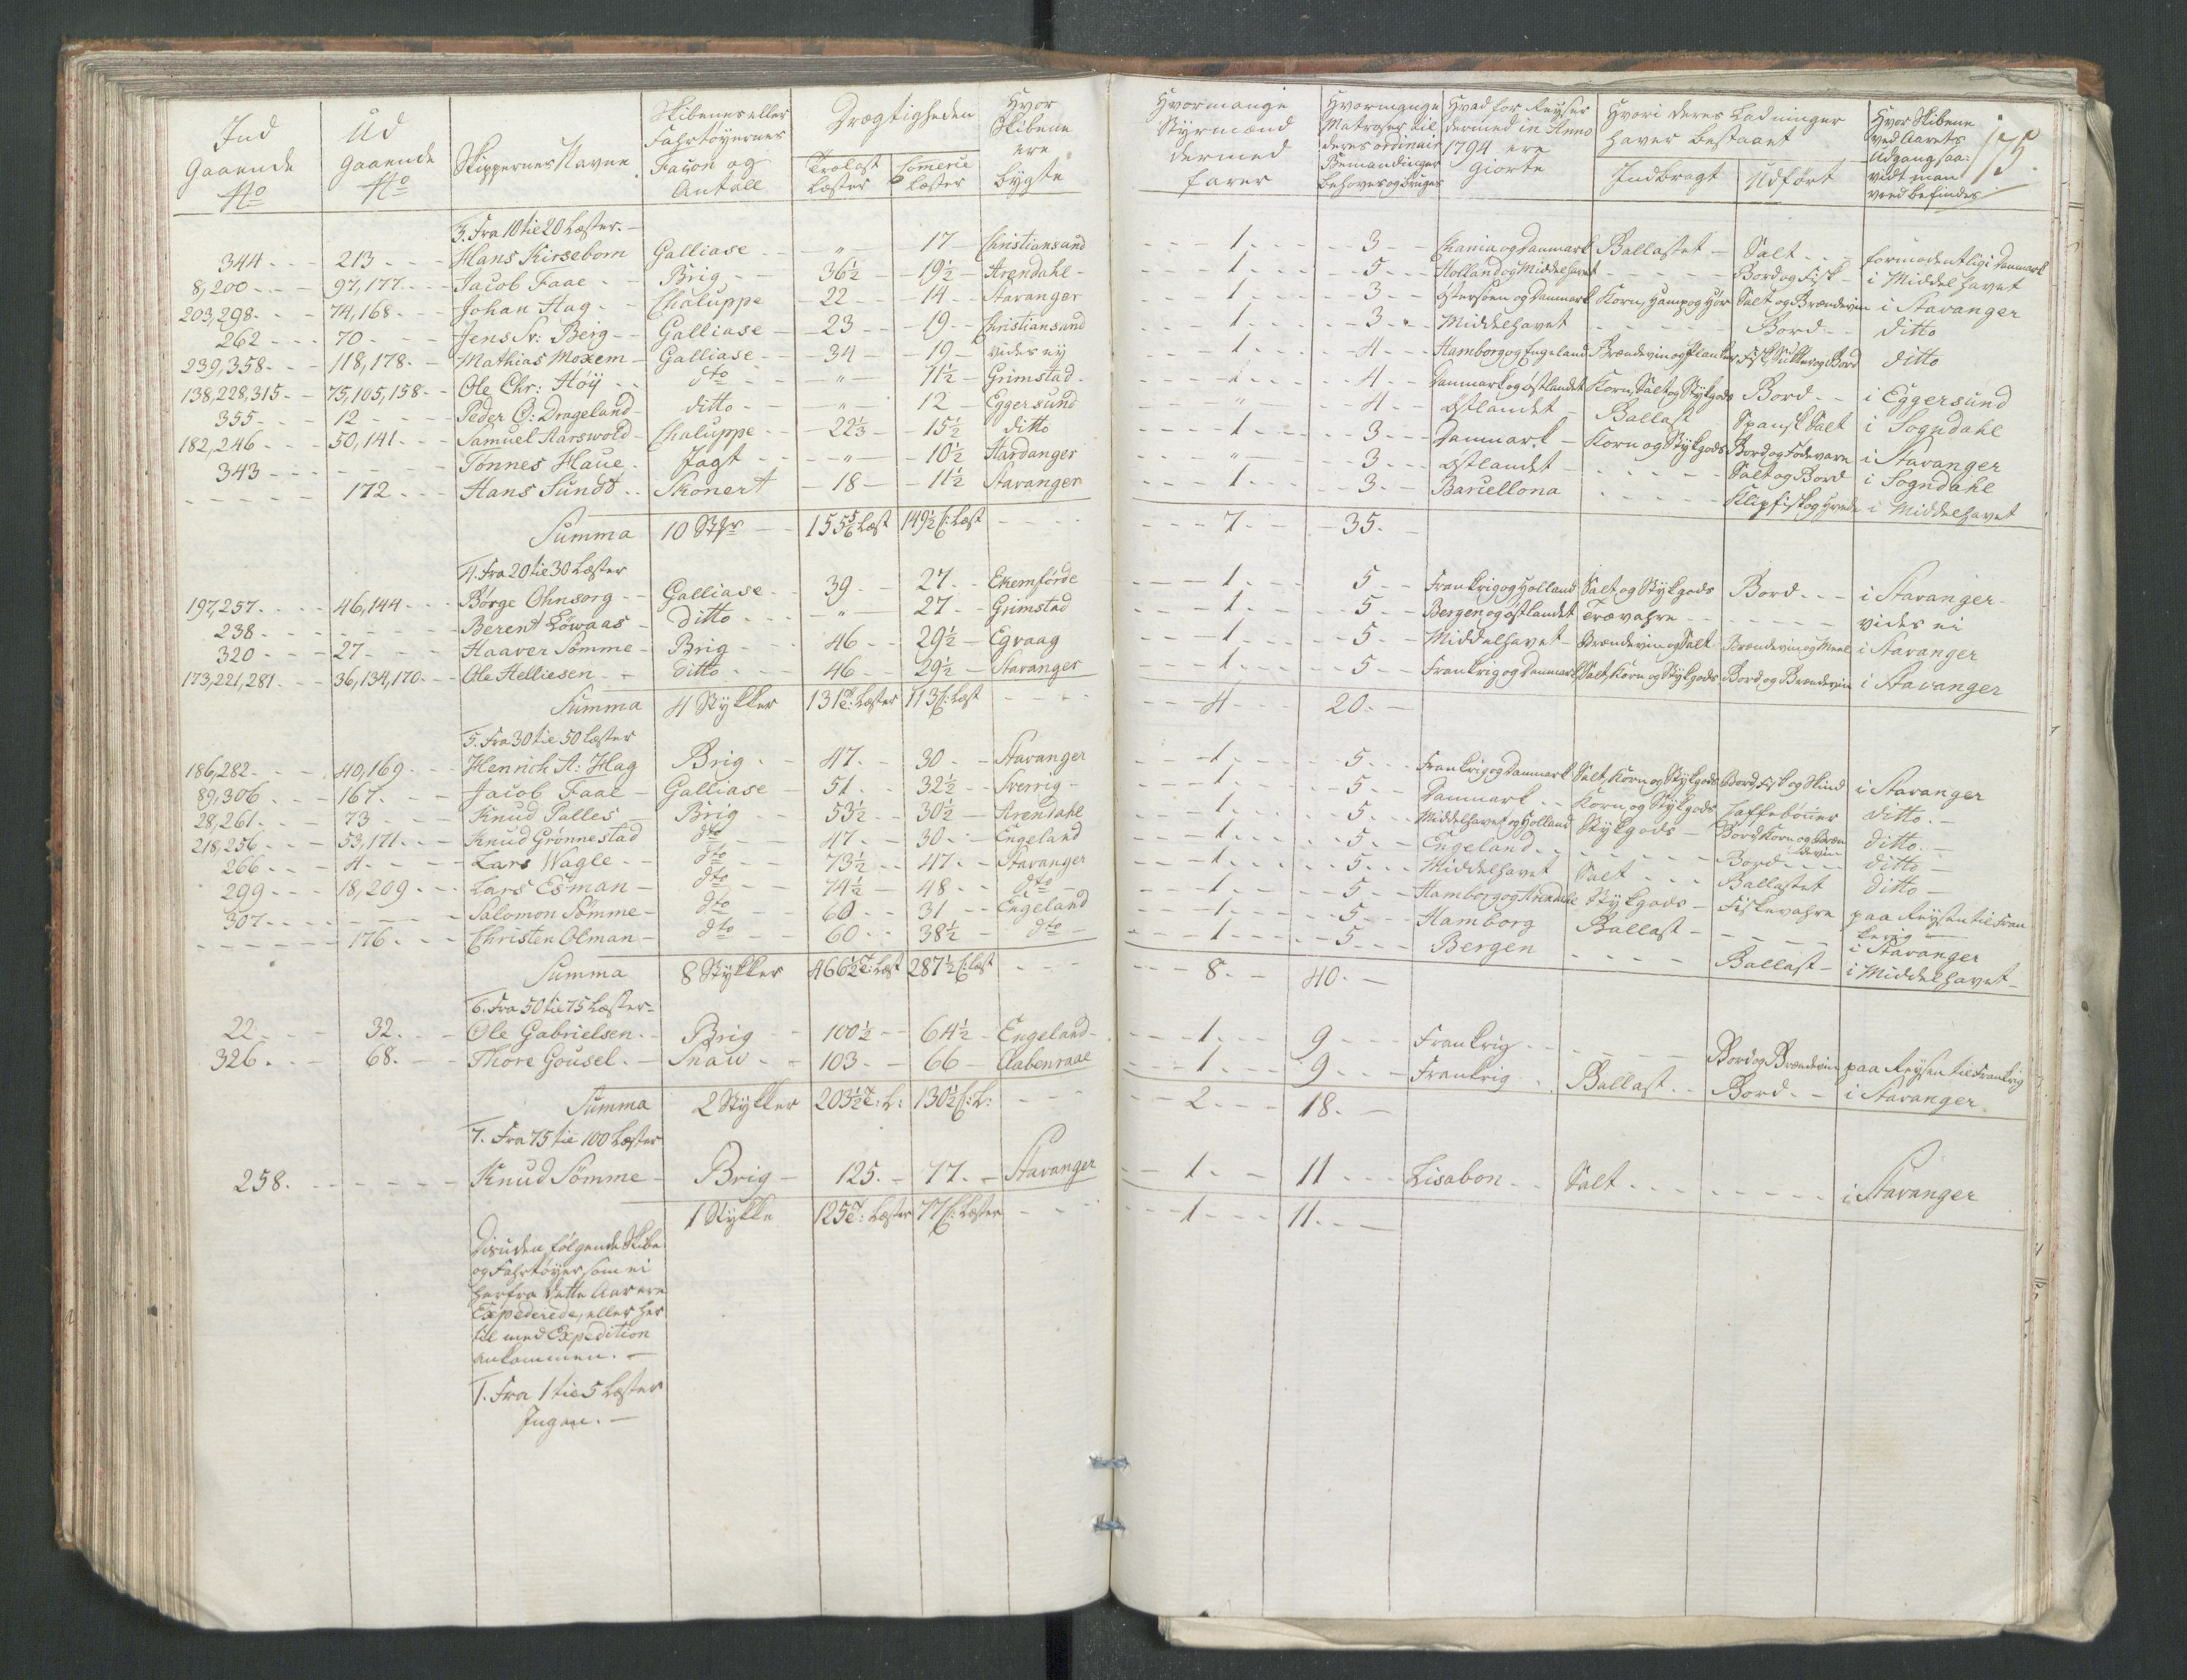 Ind Gaaende No | Ud gaaende No | Skippernes Navne | Skibenes eller Fahrtøyernes Facon og Antall | Drægtigheden: Trælast Læster | Comerce Læster | Hvor Skibene ere bygte | Hvormange Styrmænd dermed farer | Hvormange Matroser til deres ordinair Bemandinger behøves og bruges | Hvad for Reyser dermed in Anno 1794 ere Giorte | Hvori deres Ladninger haver bestaaet: Indbragt | Udført | Hvor Skibene ved Aarets Udgang saavidt man veed befindes | 175.
3. Fra 10 til 20 Læster.
344 | 213 | Hans Kirsebom | Galliase | " | 17 | Christiansund | 1 | 3 | Chania og Danmark | Ballastet | Salt | formodentlig i Danmark
8,200 | 97,177 | Jacob Faae | Brig | 36½ | 19½ | Arendahl | 1 | 5 | Holland og Middelhavet | - | Bord og Fisk | i Middelhavet
203,298 | 74,168 | Johan Hag | Chaluppe | 22 | 14 | Stavanger | 1 | 3 | Østersøen og Danmark | Korn, Hamp og Hør | Salt og Brændeviin | i Stavanger
262 | 70 | Jens Sr: Berg | Galliase | 23 | 19 | Christiansund | 1 | 3 | Middelhavet | - | Bord | ditto
239,358 | 118,178 | Mathias Moxem | Galliase | 34 | 19 | vides ey | 1 | 4 | Hamborg og Engeland | Brændeviin og Planker | Fisk, Sukker og Bord | ditto
138,228,315 | 75,105,158 | Ole Chr: Høÿ | dto | " | 11½ | Grimstad | 1 | 4 | Danmark og Østlandet | Korn, Salt og Stykgods | Bord | i Eggersund
355 | 12 | Peder O: Drageland | ditto | " | 12 | Eggersund | " | 4 | Østlandet | Ballast | Spansk Salt | i Sogndahl
182,246 | 50,141 | Samuel Aarswold | Chaluppe | 22⅓ | 15½ | ditto | 1 | 3 | Danmark | Korn og Stykgods | Bord og Fødevare | i Stavanger
343 | - | Tønnes Haue | Jagt | " | 10½ | Hardanger | " | 3 | Østlandet | - | Salt og Bord | i Sogndahl
- | 172 | Hans Sundt | Skonert | 18 | 11½ | Stavanger | 1 | 3 | Barcellona | - | Klipfisk og Hvede | i Middelhavet
Summa | 10 Stkr | 155⅚ Læst | 149½ C: Læst | - | 7 | 35.
4. Fra 20 til 30 Læster
197,257 | 46,144 | Børge Ohnsorg | Galliase | 39 | 27 | Ekemførde | 1 | 5 | Frankrig og Holland | Salt og Stykgods | Bord | i Stavanger
238 | - | Berent Löwaas | ditto | " | 27 | Grimstad | 1 | 5 | Bergen og Østlandet | Trævahre | - | vides ei
320 | 27 | Haaver Sømme | Brig | 46 | 29½ | Egvaag | 1 | 5 | Middelhavet | Brændeviin og Salt | Brændeviin og Meel | i Stavanger
173,221,281 | 36,134,170 | Ole Helliesen | ditto | 46 | 29½ | Stavanger | 1 | 5 | Frankrig og Danmark | Salt, Korn og Stykgods | Bord og Brændeviin | i Stavanger
Summa | 4 Stykker | 131 T: Læster | 113 C: Læst | - | 4 | 20.
5. Fra 30 til 50 Læster
186,282 | 40,169 | Henrich A: Hag | Brig | 47 | 30 | Stavanger | 1 | 5 | Frankrig og Danmark | Salt, Korn og Stykgods | Bord, Fisk og Skind | i Stavanger
89,306 | 167 | Jacob Faae | Galliase | 51 | 32½ | Sverrig | 1 | 5 | Danmark | Korn og Stykgods | Caffebønner | ditto
28,261 | 73 | Knud Palles | Brig | 53½ | 30½ | Arendahl | 1 | 5 | Middelhavet og Holland | Stykgods | Bord, Korn og Brændeviin | ditto
218,256 | 53,171 | Knud Grønnestad | dto | 47 | 30 | Engeland | 1 | 5 | Engeland | - | Bord | ditto
266 | 4 | Lars Wagle | dto | 73½ | 47 | Stavanger | 1 | 5 | Middelhavet | Salt | Ballastet | ditto
299 | 18,209 | Lars Esman | dto | 74½ | 48 | dto | 1 | 5 | Hamborg og Arendahl | Stykgods | Fiskevahre | paa Reysen til Frankerig
307 | - | Salomon Sømme | dto | 60 | 31 | Engeland | 1 | 5 | Hamborg | Ballast | - | i Stavanger
- | 176 | Christen Olman | dto | 60 | 38½ | dto | 1 | 5 | Bergen | - | Ballast | i Middelhavet
Summa | 8 Stykker | 466½ T: Læst | 287½ C: Læst | - | 8 | 40.
6. Fra 50 til 75 Læster
22 | 32 | Ole Gabrielsen | Brig | 100½ | 64½ | Engeland | 1 | 9 | Frankrig | - | Bord og Brændeviin | paa Reysen til Frankrig
326 | 68 | Thore Gousel | Snau | 103 | 66 | Aabenraae | 1 | 9 | Frankrig | Ballast | Bord | i Stavanger
Summa | 2 Stykker | 203½ T: L: | 130½ C: L: | - | 2 | 18.
7. Fra 75 til 100 Læster
258 | - | Knud Sømme | Brig | 125 | 77 | Stavanger | 1 | 11 | Lisabon | Salt | - | i Stavanger
1 Stykke | 125 T: Læster | 77 C: Læster | - | 1 | 11.
Desuden følgende Skibe
og Fahrtøyer som ei
herfra dette Aar ere
Expederede, eller her
til med Expedition
ankommen.
1. Fra 1 til 5 Læster
Ingen.